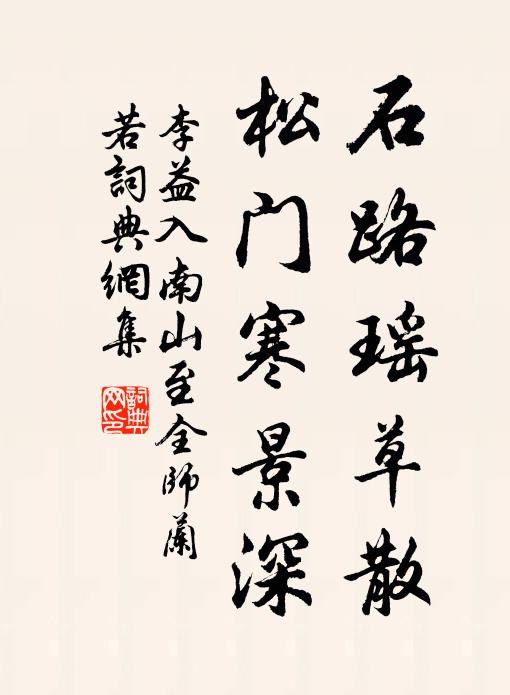 石路瑶草散
松门寒景深
李益入南山至全师兰
若詞典網集
詞典
网印